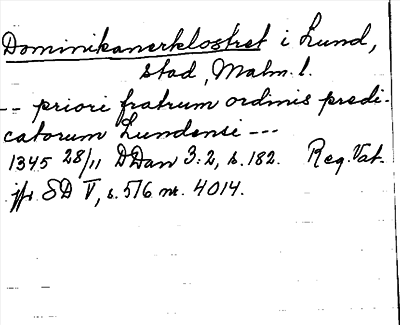 Dominikanerklostret i Lund,
stad, Malm. l.
-- priori fratrum ordinis predi-
catorum Lundensi ---
1345 28/11 DDan 3:2, s. 182. Reg. Vat.
jfr SD V, s. 516 nr. 4014.